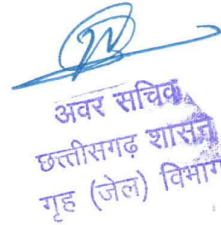 अवर सचिव
छत्तीसगढ़ शासन
गृह (जेल) विभाग